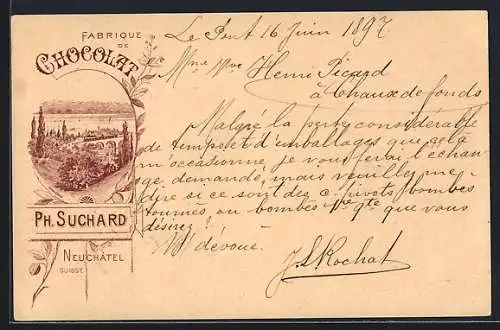 FABRIQUE
DE
CHOCOLAT
PH. SUCHARD
NEUCHÂTEL
SUISSE
Le Pont 16 Juin 1897
Mme Vve Henri Picard
à Chaux de fonds
Malgré la perte considérable
de temps et d'emballages que cela
m'occasionne, je vous ferai l'échan-
ge demandé, mais veuillez me
dire si ce sont des c. pivots bombés
tournés, ou bombés 1re qte que vous
désirez!
dévoué
JLRochat